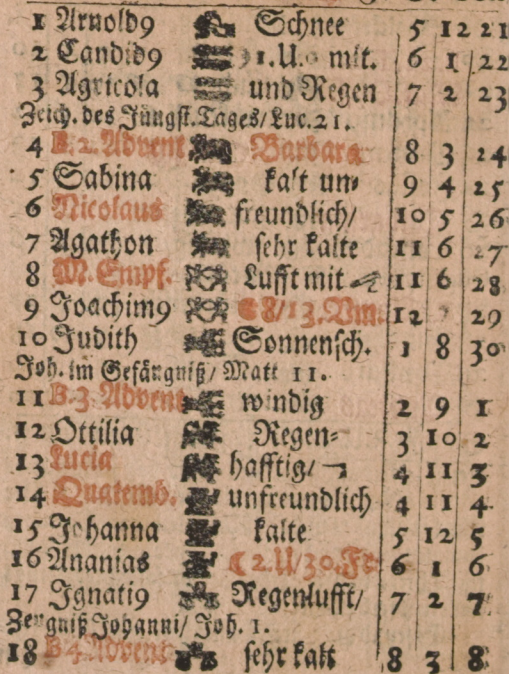 1 Arnold9 Schnee 5 12 21
2 Candid9 1.U. mit. 6 1 22
3 Agricola und Regen 7 2 23
Zeich. des Jüngst. Tages/ Luc. 21.
4 B. 2. Advent Barbara 8 3 24
5 Sabina kalt un⸗ 9 4 25
6 Nicolaus freundlich/ 10 5 26
7 Agathon sehr kalte 11 6 27
8 M. Empf. Lufft mit 11 6 28
9 Joachim9 ☾ 8/13. Vm. 12 29
10 Judith Sonnensch. 1 8 30
Joh. im Gefängniß/ Matt 11.
11 B. 3 Advent windig 2 9 1
12 Ottilia Regen⸗ 3 10 2
13 Lucia hafftig/ 4 11 3
14 Quatemb. unfreundlich 4 11 4
15 Johanna kalte 5 12 5
16 Ananias ☾ 2. U/30. Fr 6 1 6
17 Ignati9 Regenlufft/ 7 2 7
Zeugniß Johanni/ Joh. 1.
18 B 4. Advent sehr kalt 8 3 8